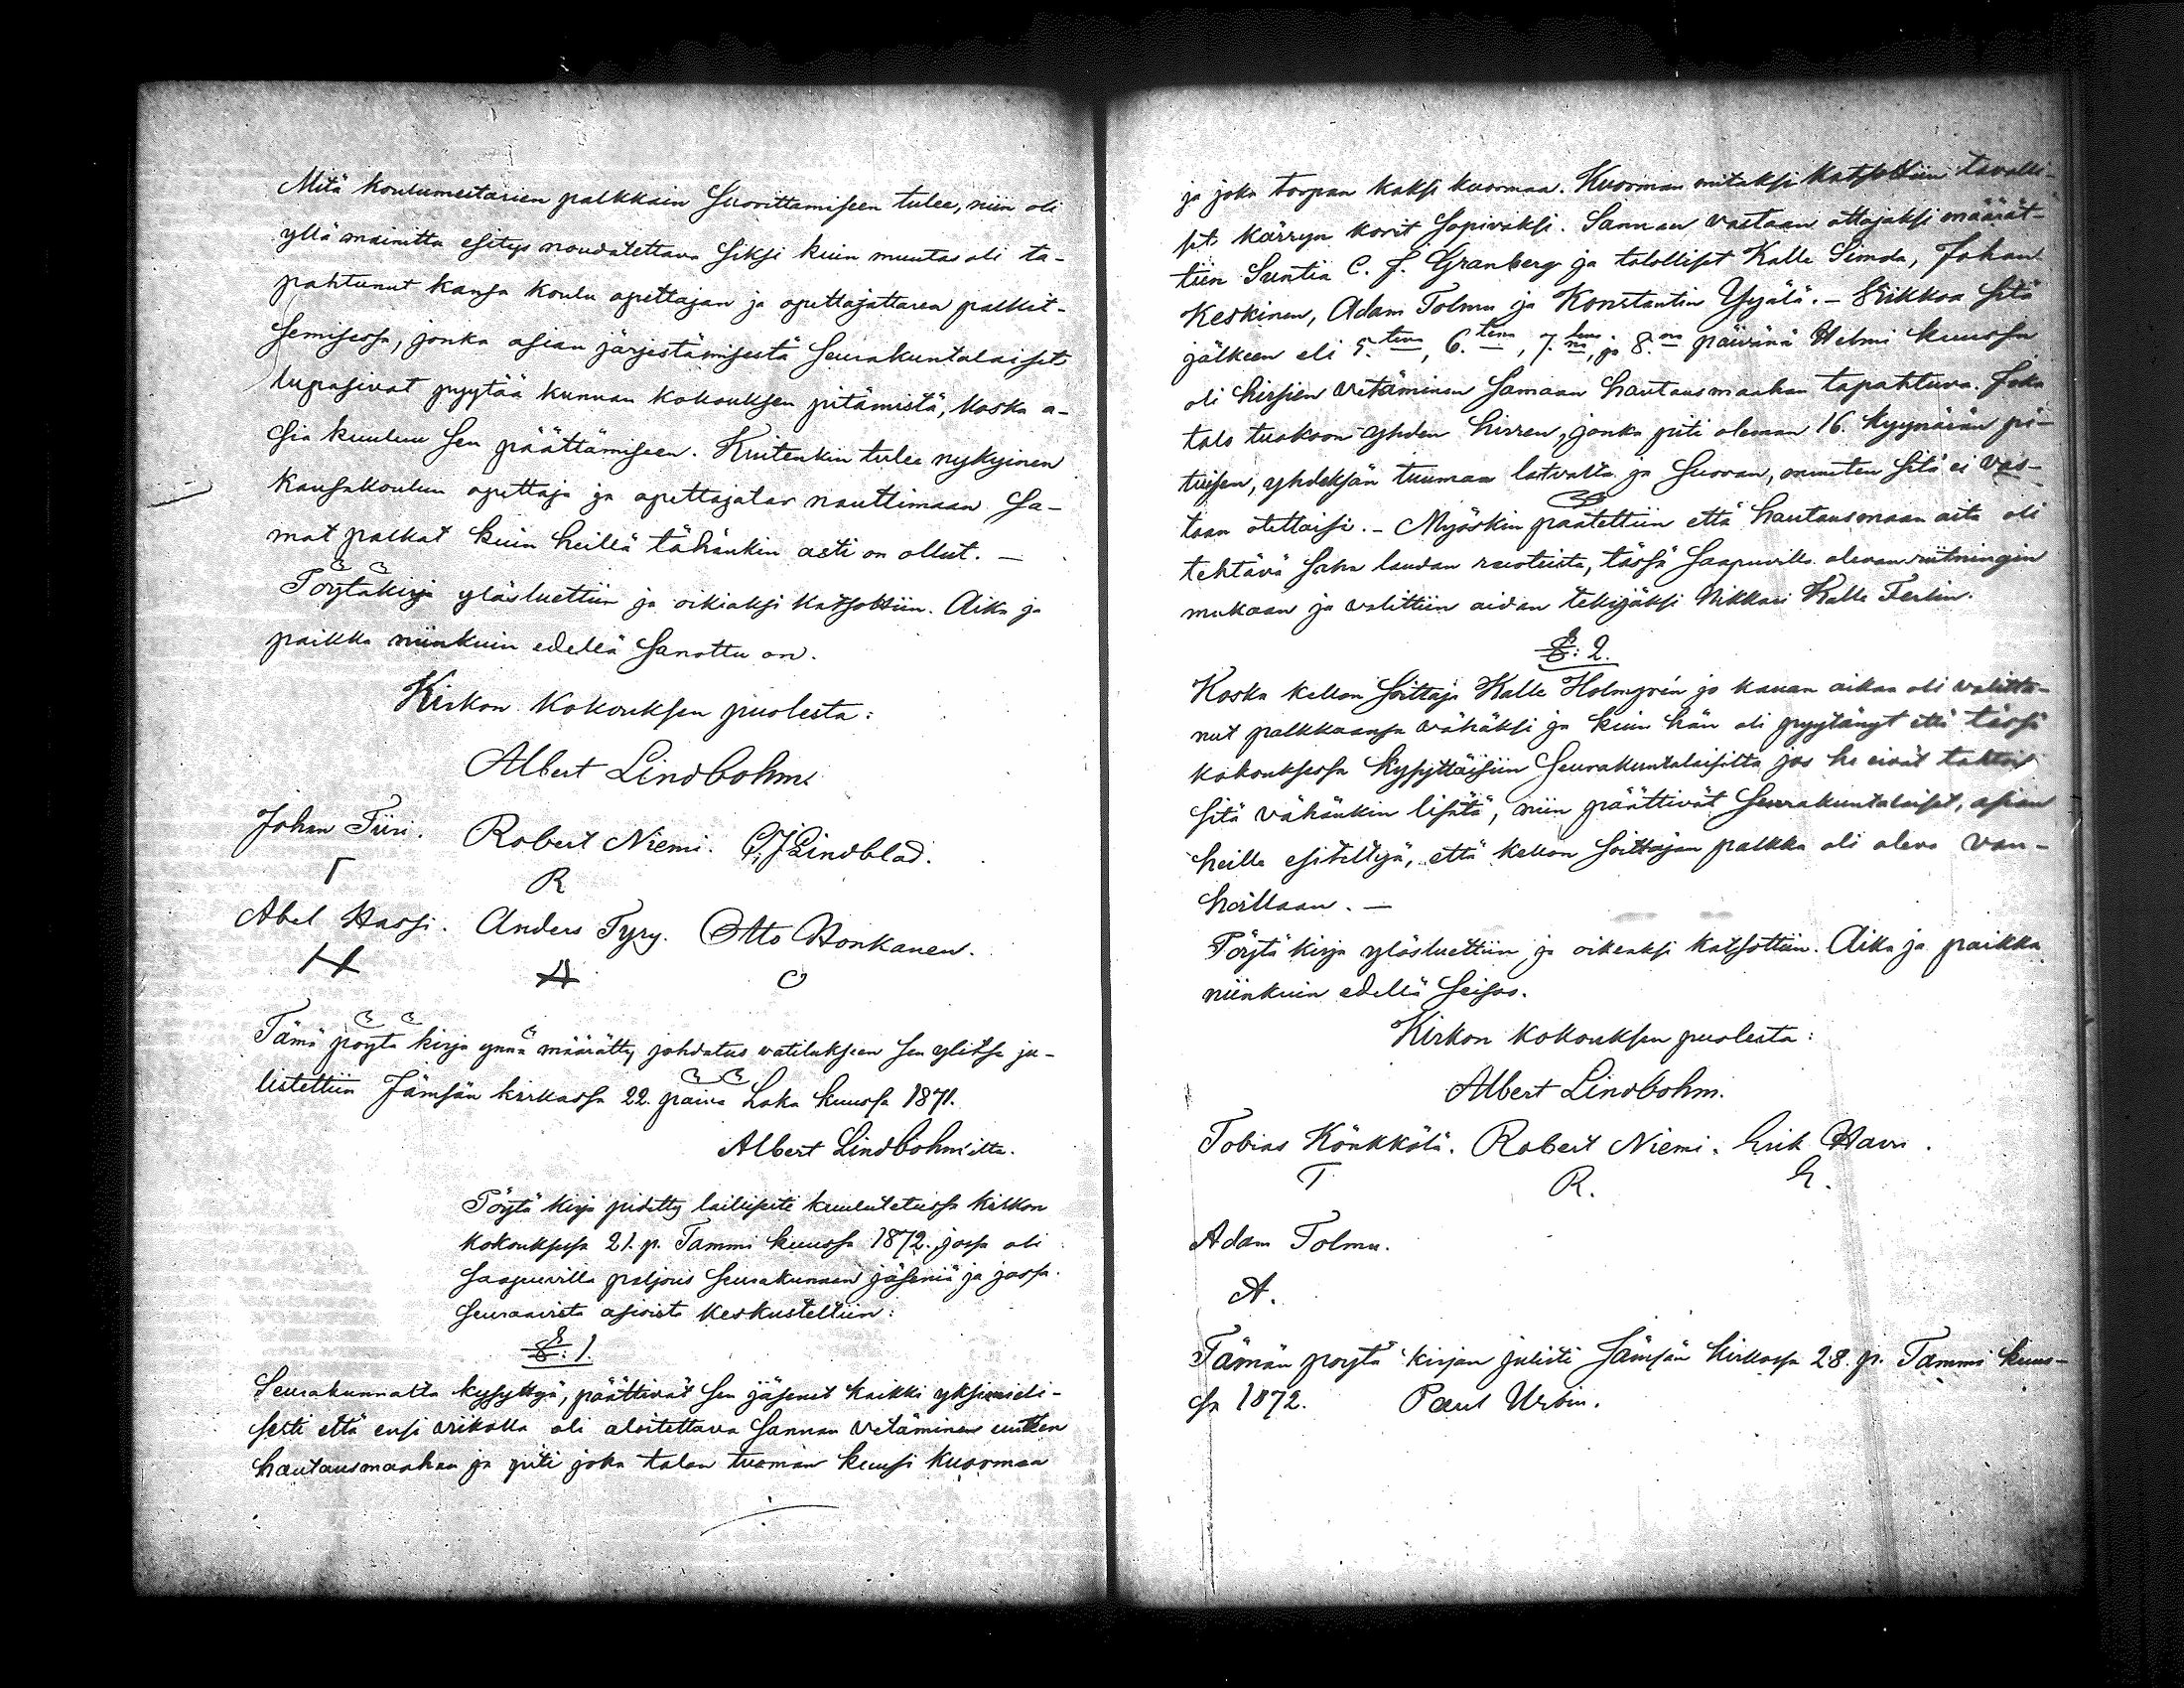 Mitä koulumestarien palkkain suorittamiseen tulee, niin oli
yllä mainittu esitys noudatettava siksi kuin muutos oli ta-
pahtunut kansa koulu opettajan ja opettajattaren palkit-
semisessa, jonka asian järjestämisestä seurakuntalaiset
lupasivat pyytää kunnan kokouksen pitämistä, koska a-
sia kuuluu sen päättämiseen. Kuitenkin tulee nykyinen
kansakoulun opettaja ja opettajatar nauttimaan sa-
mat palkat kuin heillä tähänkin asti on ollut. —
Pöytäkirja ylösluettiin ja oikiaksi katsottiin. Aika ja
paikka niinkuin edellä sanottu on.
Kirkon kokouksen puolesta:
Albert Lindbohm.
Johan Tiiri. Robert Niemi. C. J. Lindblad.
T R
Abel Hassi. Anders Tyry. Otto Honkanen.
H A O
Tämä pöytä kirja ynnä määrätty johdatus valitukseen sen ylitse ju-
listettiin Jämsän kirkossa 22. päivä Loka kuussa 1871.
Albert Lindbohm'ilta.
Pöytä kirja pidetty laillisesti kuulutetussa kirkon
kokouksessa 21. p. Tammi kuussa 1872. jossa oli
saapuvilla paljous seurakunnan jäseniä ja jossa
seuraavista asioista keskusteltiin:
§: 1.
Seurakunnalta kysyttyä, päättivät sen jäsenet kaikki yksimieli-
sesti että ensi viikolla oli aloitettava sannan vetäminen uuteen
hautausmaahan ja piti joka talon tuoman kuusi kuormaa
ja joka torpan kaksi kuormaa. Kuorman mitaksi katsottiin tavalli-
set kärryn korit sopivaksi. Sannan vastaan ottajaksi määrät-
tiin Suntia C. J. Granberg ja talolliset Kalle Simola, Johan
Keskinen, Adam Tolmu ja Konstantin Yijälä. — Viikkoa sitä
jälkeen eli 5.tenä, 6.tena, 7.mänä, ja 8.na päivänä Helmi kuussa
oli hirsien vetäminen samaan hautausmaahan tapahtuva. Joka
talo tuokoon yhden hirren, jonka piti oleman 16. kyynärän pi-
tuisen, yhdeksän tuuman latvalta ja suoran, muuten sitä ei vas-
taan otettaisi. — Myöskin päätettiin että hautausmaan aita oli
tehtävä saha laudan ruoteista, tässä saapuvilla olevan riitningin
mukaan ja valittiin aidan tekijäksi Nikkari Kalle Ferlin.
§: 2.
Koska kellon soittaja Kalle Holmgrén jo kauan aikaa oli valitta-
nut palkkaansa vähäksi ja kuin hän oli pyytänyt että tässä
kokouksessa kysyttäisiin seurakuntalaisilta jos he eivät tahtoisi
sitä vähänkin lisätä, niin päättivät seurakuntalaiset, asian
heille esiteltyä, että kellon soittajan palkka oli oleva van-
hoillaan. —
Pöytä kirja ylösluettiin ja oikeaksi katsottiin. Aika ja paikka
niinkuin edellä seisoo.
Kirkon kokouksen puolesta:
Albert Lindbohm.
Tobias Könkkölä. Robert Niemi. Erik Havu.
T R. E.
Adam Tolmu.
A.
Tämän pöytä kirjan julisti Jämsän kirkossa 28. p. Tammi kuus-
sa 1872. Paul Urbin.